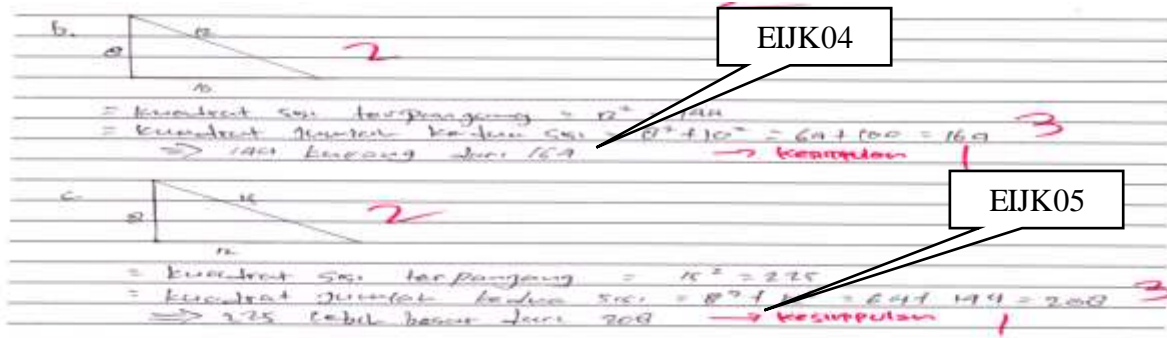 b.
12
2
EIJK04
8
10
= kuadrat sisi terpanjang = 12² = 144
= kuadrat jumlah kedua sisi = 8² + 10² = 64 + 100 = 164
3
⇒ 144 kurang dari 164 → kesimpulan 1
c.
15
2
EIJK05
8
12
= kuadrat sisi terpanjang = 15² = 225
= kuadrat jumlah kedua sisi = 8² + = 64 + 144 = 208
3
⇒ 225 lebih besar dari 208 → kesimpulan 1